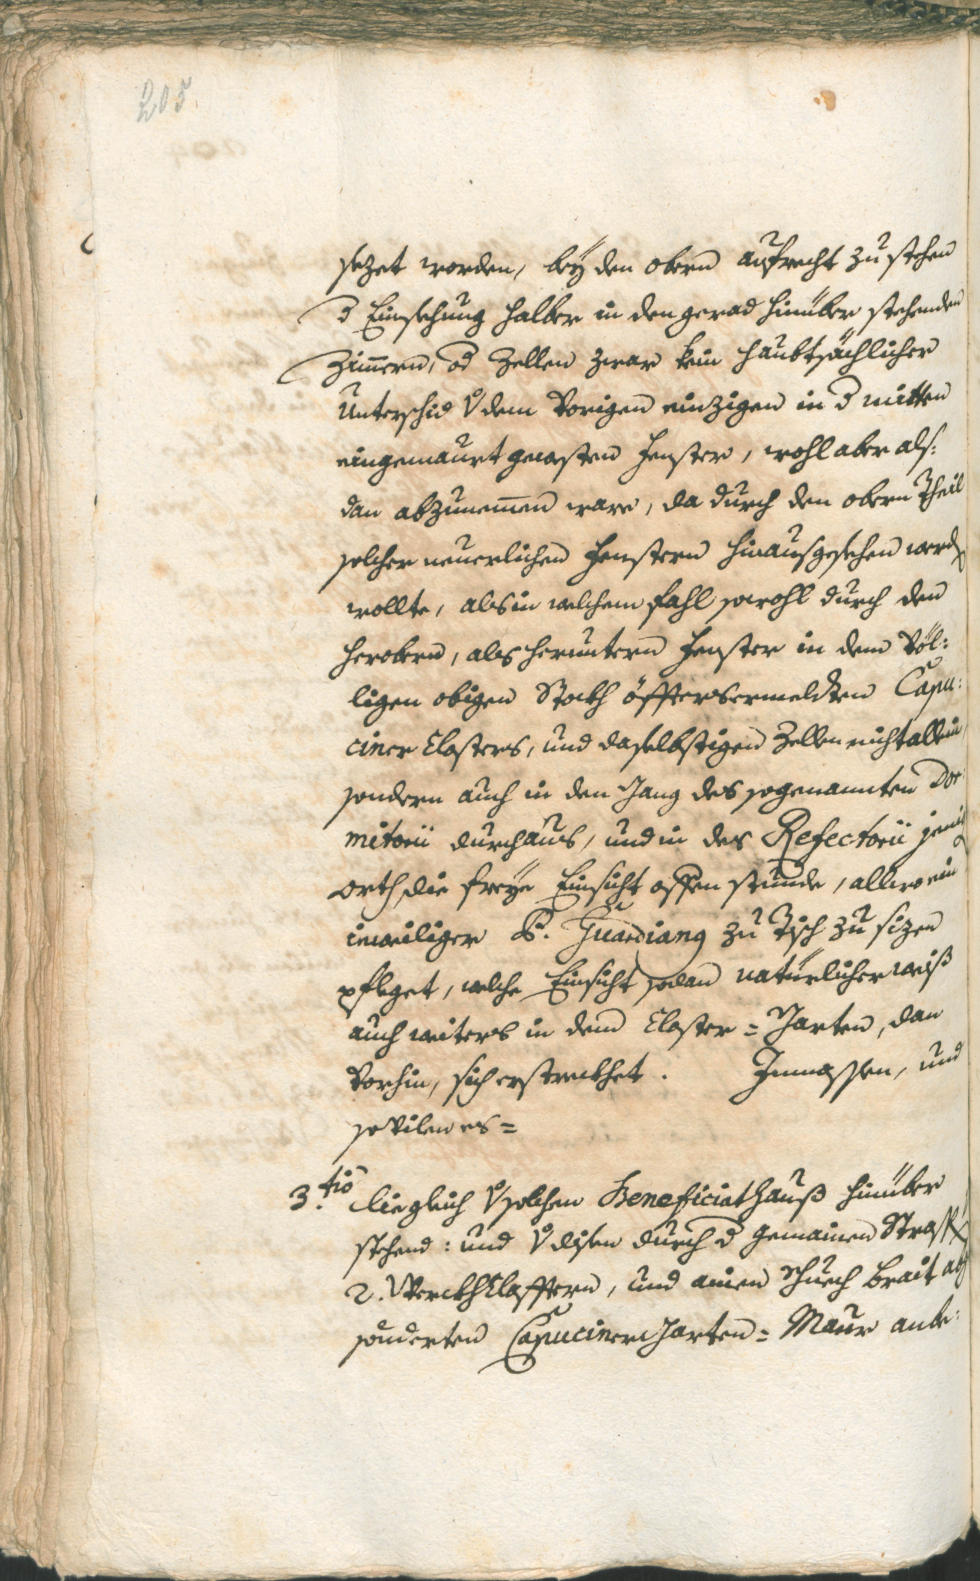 205.
sezet worden, beÿ den obern aufrecht zu stehen
d Einsehung halber in den gerad hinüber stehenden
Zimmern, od Zellen zwar kein haubtsächlicher
Unterschid v dem vorigen einzigen in d mitten
eingemaurt gewesten Fenster, wohl aber als:
dan abzunemmen ware, da durch den obern Theil
solcher neuerlichen Fenstern hinausgesehen werd
wollte, als in welchem fahl sowohl durch den
herobern, als heruntern Fenster in dem völ:
ligen obigen Stokh öffters ermeldten Capu:
ciner Closters, und daselbstigen Zellen nicht allein
sondern auch in den Gang des sogenannten Dor
mitorii durchaus, und in des Refectorii jenig
orth, die freÿe Einsicht offen stunde, allwo ein
ieweiliger P. Guardiang zu Tisch zu sizen
pfleget, welche Einsicht sodan natürlicher weiß
auch weiters in dem Closter = Garten, dan
vorhin, sich erstreckhet. Inmassen, und
sovilen es =
3.tiò die gleich v solchen Beneficiat Hauß hinüber
stehend: und v disen durch d gemainen Strass
2. Werckh Clafftern, und ainen Schuech brait ab
sönderten Capuciner Garten = Maur anbe: